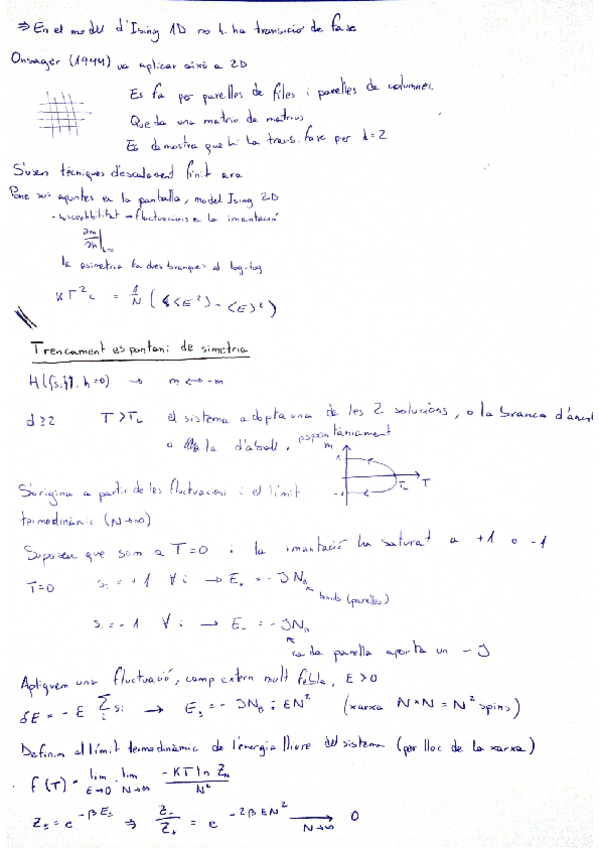 ⇒ En el model d'Ising 1D no hi ha transició de fase
Onsager (1944) va aplicar això a 2D
Es fa por parelles de files i parelles de columnes.
Queda una matriu de matrius
Es demostra que hi ha trans. fase per d=2
S'usen tècniques d'escalament finit ara
Pone sus apuntes en la pantalla, model Ising 2D
- susceptibilitat → fluctuacions en la imantació
∂m/∂h |h=0
la asimetria fa dues branques al log-log
KT²c = 1/N (<E²> - <E>²)
Trencament espontani de simetria
H({si}, h=0) → m ↔ -m
d≥2 T>Tc el sistema adopta una de les 2 solucions, o la branca d'amunt
o la d'abaix, espontàniament
m
1
-1
Tc T
S'origina a partir de les fluctuacions i el límit
termodinàmic (N→∞)
Suposem que som a T=0 i la imantació ha saturat a +1 o -1
T=0 si = +1 ∀i → E+ = -JNB
bonds (parelles)
si = -1 ∀i → E- = -JNB
cada parella aporta un -J
Apliquem una fluctuació, camp extern molt feble, ε>0
δE = -ε Σi si → E± = -JNB ∓ εN² (xarxa N×N = N² spins)
Definim el límit termodinàmic de l'energia lliure del sistema (per lloc de la xarxa)
f(T) = lim ε→0 lim N→∞ -KT ln Zn / N²
Z± = e^-βE± ⇒ Z-/Z+ = e^-2βεN² → N→∞ 0